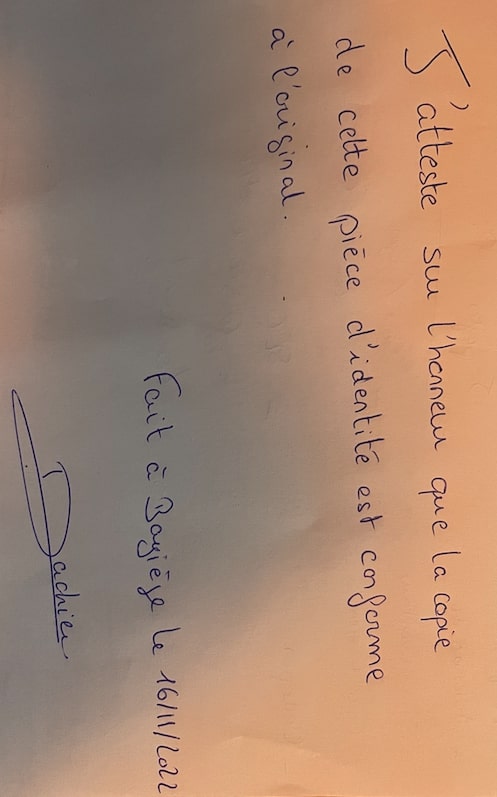 J'atteste sur l'honneur que la copie
de cette pièce d'identité est conforme
à l'original.
Fait à Baziège le 16/11/2022
Dachier